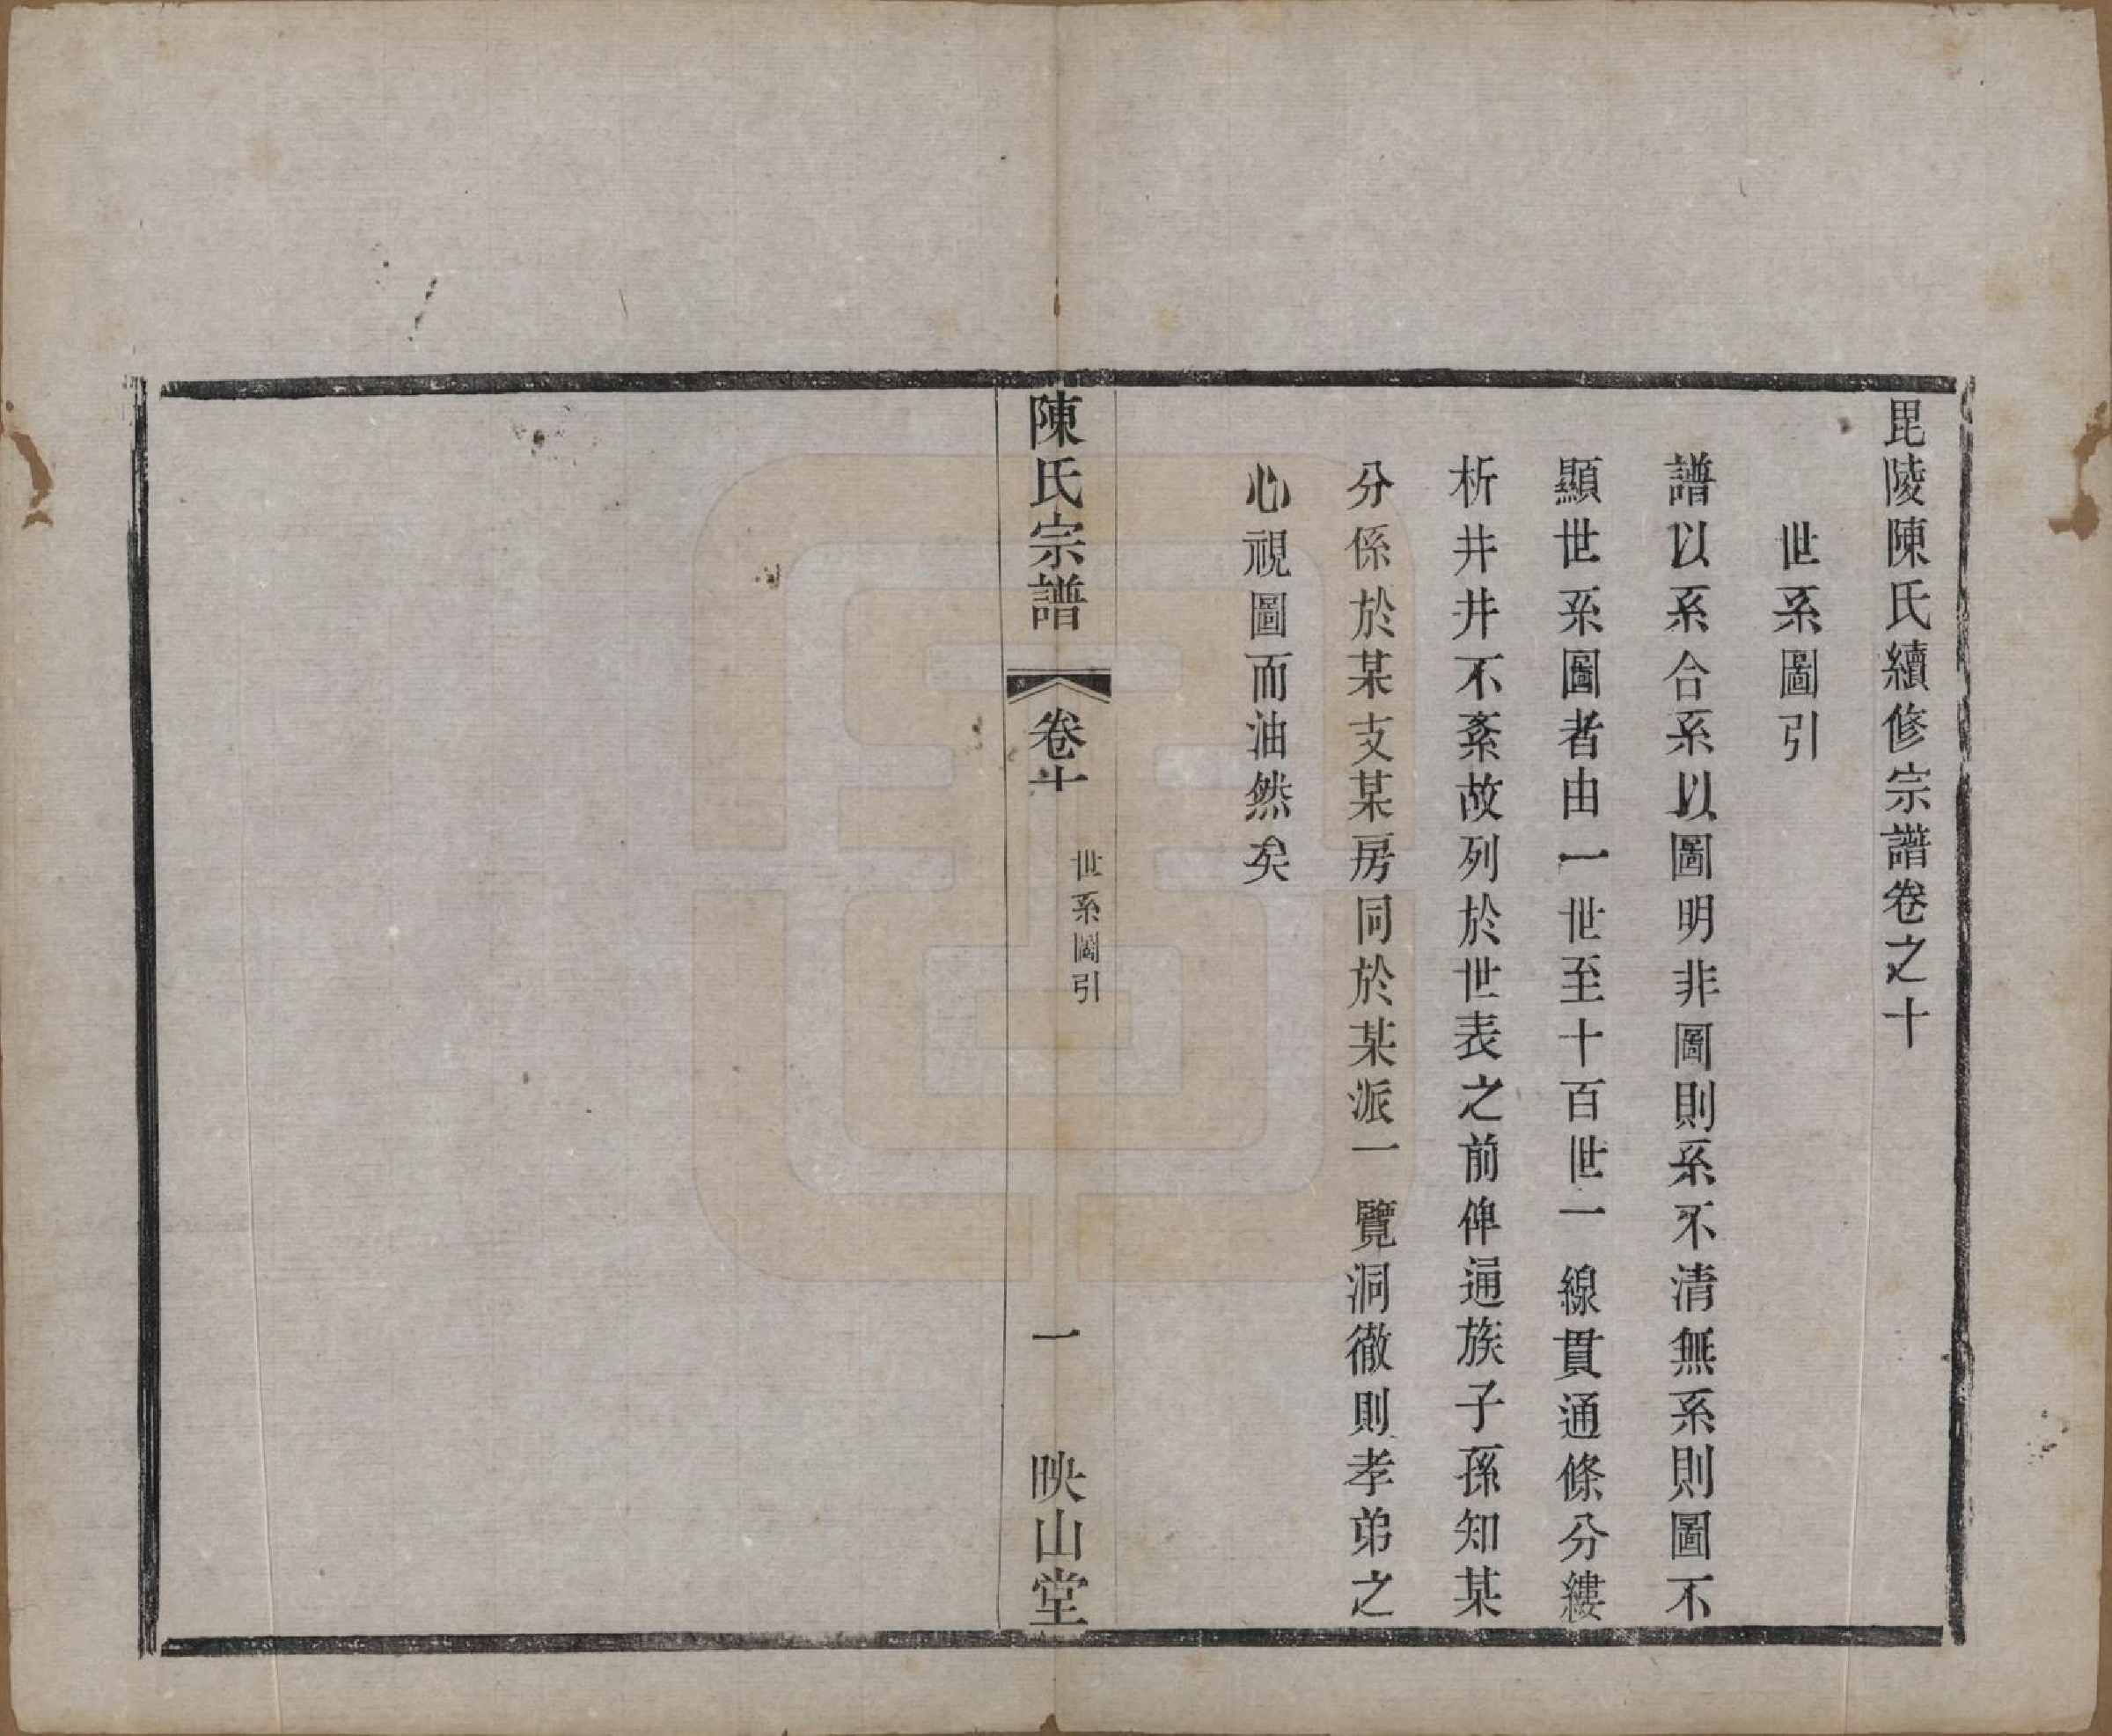 毘陵陳氏續修宗譜卷之十
世系圖引
譜以系合系以圖明非圖則系不清無系則圖不
顯世系圖者由一世至十百世一線貫通條分縷
析井井不紊故列於世表之前俾通族子孫知某
分係於某支某房同於某派一覽洞徹則孝弟之
心視圖而油然矣
陳氏宗譜
卷十
世系圖引
一
映山堂